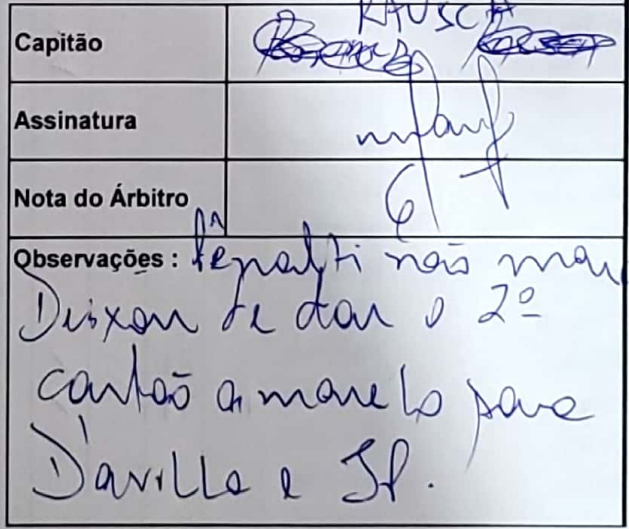 Capitão RAUSCH
Assinatura
Nota do Árbitro 6
Observações : Pênalti não mar
Deixou de dar o 2º
cartão amarelo para
Davilla e JP.